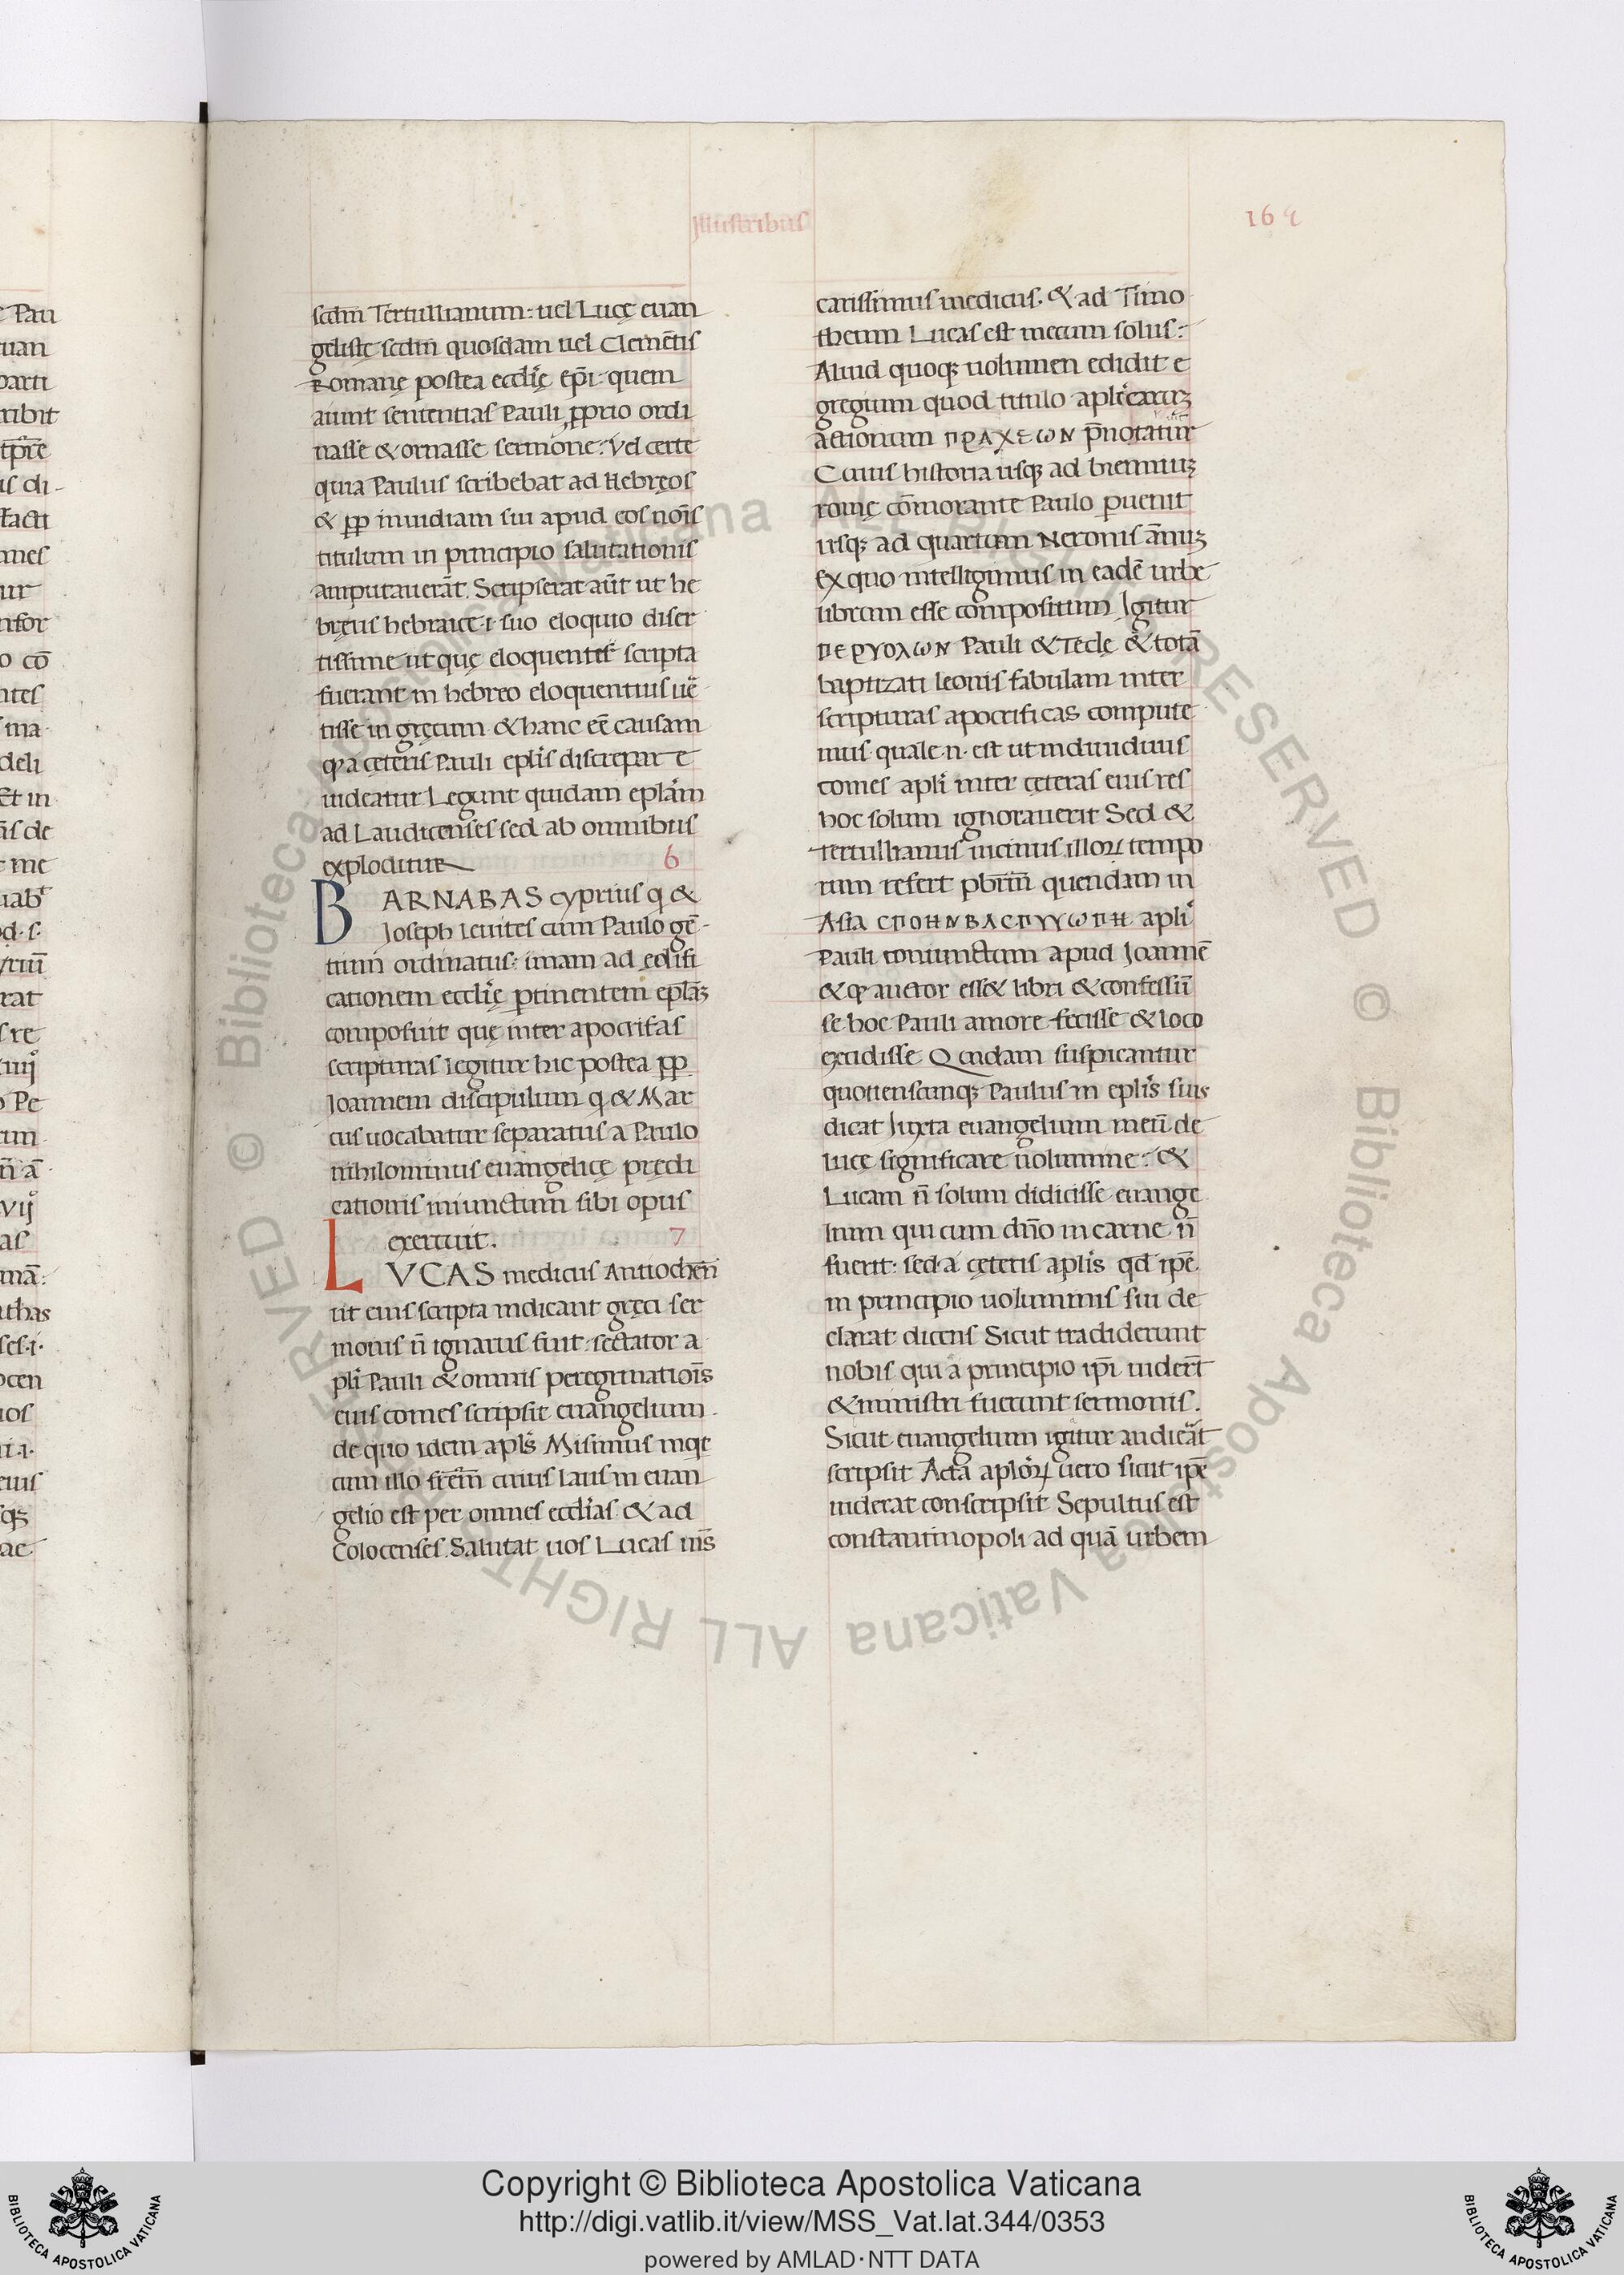 Illustribus
164
secdm Tertullianum: uel Lucę euan
gelistę secdm quosdam uel Clemētis
Romanę postea ecclię epi: quem
aiunt sententias Pauli pprio ordi
nasse & ornasse sermone: Vel certe
quia Paulus scribebat ad Hebręos
& pp inuidiam sui apud eos nois
titulum in principio salutationis
amputauerāt. Scripserat aūt ut he
bręus hebraice .i. suo eloquio diser
tissime ut quę eloquenter scripta
fuerant in hebreo eloquentius uē
tisse in gręcum & hanc eē causam
ꝙ a ceteris Pauli eplis discrepare
uideatur Legunt quidam eplam
ad Laudicenses sed ab omnibus
exploditur
6
BARNABAS cyprius q &
Joseph leuites cum Paulo gē
tium ordinatus: unam ad edifi
cationem ecclię ptinentem eplaꝫ
composuit quę inter apocrifas
scripturas legitur hic postea pp
Joannem discipulum q & Mar
cus uocabatur separatus a Paulo
nihilominus euangelicę prędi
cationis iniunctum sibi opus
exercuit.
7
LVCAS medicus Antiochen̄
ut eius scripta indicant gręci ser
monis n̄ ignarus fuit: sectator a
pli Pauli & omnis peregrinatiois
eius comes scripsit euangelium
de quo idem apls Misimus inqt
cum illo frēm cuius laus in euan
gelio est per omnes ecclias & ad
Colocenses. Salutat uos Lucas m̄s
carissimus medicus. & ad Timo
theum Lucas est mecum solus:
Aliud quoqꝫ uolumen edidit e
gregium quod titulo aplicarꝫ
actionum ΠΡΑΧΕωΝ p̄notatur
Cuius historia usqꝫ ad bienniuꝫ
romę cōmorante Paulo puenit
usqꝫ ad quartum Neronis ānuꝫ
Ex quo intelligimus in eadē urbe
librum esse compositum Igitur
ΠΕΡΥΟΛωΝ Pauli & Teclę & totā
baptizati leonis fabulam inter
scripturas apocrificas compute
mus quale .n. est ut indiuiduus
comes apli inter ceteras eius res
hoc solum ignorauerit Sed &
tertullianus uicinus illoꝝ tempo
rum refert pbrm̄ quendam in
Asia CΠΟΗΝΒΛCΠΥΥωΠΗ apli
Pauli coniunctum apud Joannē
& ꝙ auctor ess& libri & confessū
se hoc Pauli amore fecisse & loco
excidisse Quidam suspicantur
quotienscunqꝫ Paulus in eplis suis
dicat Iuxta euangelium meū de
lucę significare uolumine: &
Lucam n̄ solum didicisse euange
lium qui cum dn̄o in carne n̄
fuerit: sed a ceteris aplis qd ipē
in principio uoluminis sui de
clarat dicens Sicut tradiderunt
nobis qui a principio ipi uidert̄
& ministri fuerunt sermonis.
Sicut euangelium igitur audierat
scripsit Acta aploꝝ uero sicut ipē
uiderat conscripsit Sepultus est
constantinopoli ad quā urbem
Copyright © Biblioteca Apostolica Vaticana
http://digi.vatlib.it/view/MSS_Vat.lat.344/0353
powered by AMLAD·NTT DATA
BIBLIOTECA APOSTOLICA VATICANA
BIBLIOTECA APOSTOLICA VATICANA